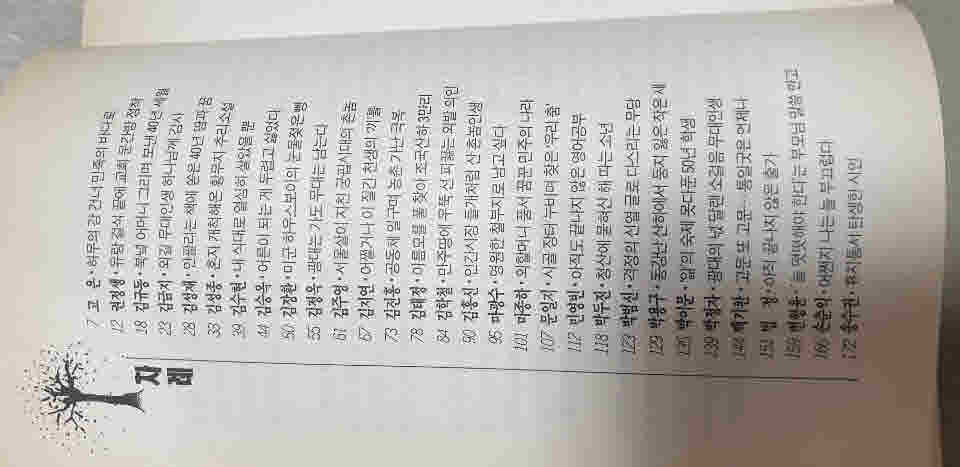 차례
7 고 은 · 허무의 강 건너 민족의 바다로
12 권정생 · 유랑 걸식 끝에 교회 문간방 정착
18 김규동 · 북녘 어머니 그리며 보낸 40년 세월
23 김금지 · 외길 무대인생 하나님께 감사
28 김성재 · 안팔리는 책에 쏟은 40년 땀과 꿈
33 김성종 · 혼자 개척해온 황무지 추리소설
39 김수현 · 내 식대로 열심히 살았을 뿐
44 김승옥 · 어른이 되는 게 두렵고 싫었다
50 김장환 · 미군 하우스보이의 눈물젖은 빵
55 김정옥 · 광대는 가도 무대는 남는다
61 김주영 · 시골살이 지친 궁핍시대의 촌놈
67 김지연 · 어쩔거나 이 질긴 천생의 끼를
73 김진홍 · 공동체 일구며 농촌 가난 극복
78 김태정 · 이름모를 풀 찾아 조국산하 3만리
84 김학철 · 민주땅에 우뚝 선 피끓는 외발 의인
90 김홍신 · 인간시장 들개처럼 산 촌놈인생
95 마광수 · 영원한 철부지로 남고 싶다
101 마종하 · 외할머니 품서 꿈꾼 민주의 나라
107 문순태 · 시골 장터 누비며 찾은 '우리 춤'
112 민영빈 · 아직도 끝나지 않은 영어공부
118 박두진 · 청산에 묻혀산 해 따는 소년
123 박범신 · 걱정의 선열 글로 다스리는 무당
129 박용구 · 동강난 산하에서 둥지 잃은 작은 새
135 박이문 · '앎'의 숙제 못다푼 50년 학생
139 박정자 · 광대의 넋 달랜 소걸음 무대인생
144 백기완 · 고문 또 고문… 통일굿은 언제나
151 법 정 · 아직 끝나지 않은 출가
158 변형윤 · 늘 떳떳해야 한다는 부모님 말씀 안고
166 손춘익 · 어쩐지 나는 늘 부끄럽다
172 송수권 · 휴지통서 탄생한 시인